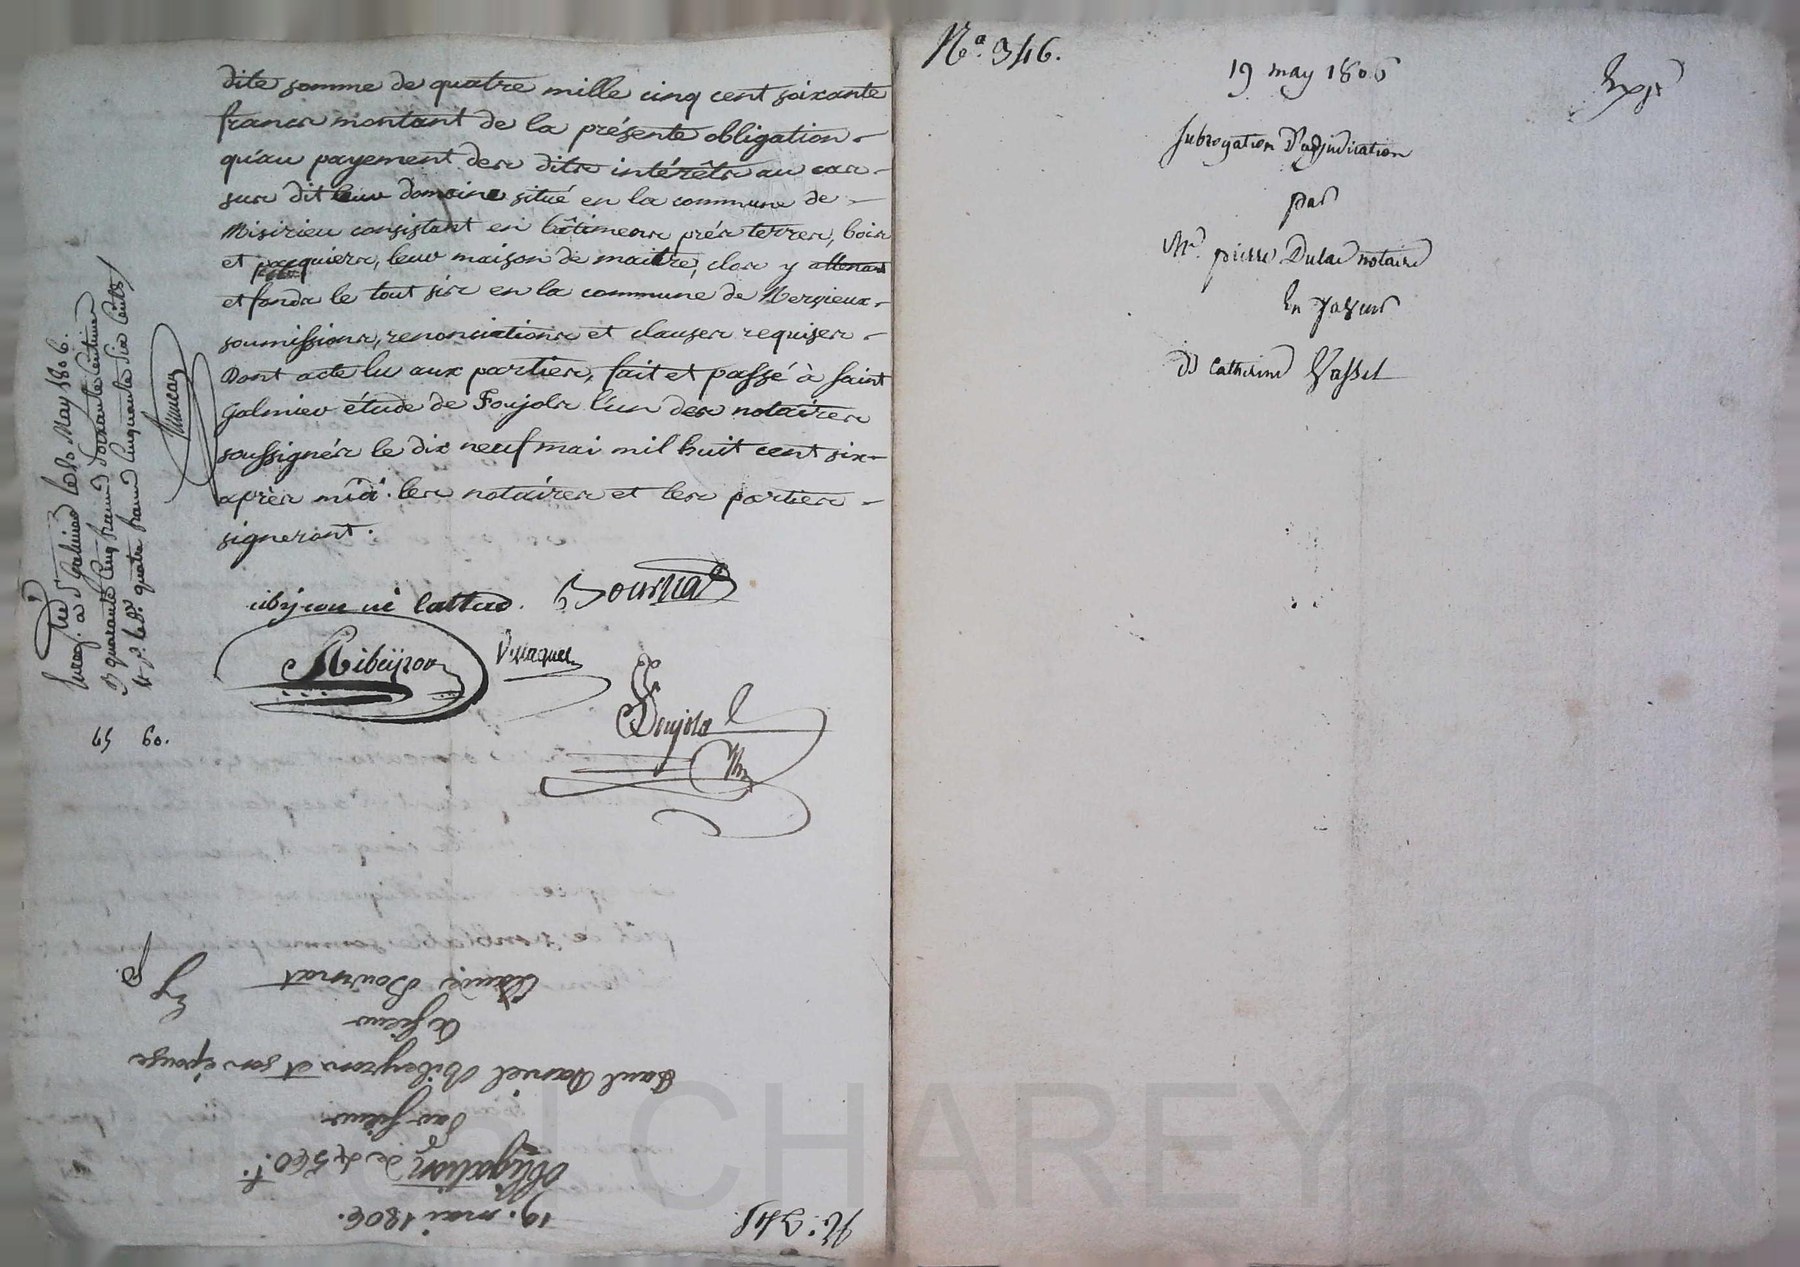 dite somme de quatre mille cinq cent soixante
francs montant de la présente obligation
qu'au payement des dits intérêts au cas
sus dit leur domaine situé en la commune de
Misirieu consistant en bâtimens prés terres, bois
et paquiers, leur maison de maitre, clos y attenant
et fonds le tout sis en la commune de Mersieux
soumissions, renonciations et clauses requises
Dont acte lu aux parties, fait et passé à Saint
Galmier étude de Foujols l'un des notaires
soussignés le dix neuf mai mil huit cent six
après midi. les notaires et les parties
signeront.
Bournat
Ribeyron
Foujols
Nre
Enreg.tré à St Galmier le 20 May 1806.
quarante cinq francs soixante centimes
quatre francs cinquante six cents
45 60.
N.o 345.
19. mai 1806.
Obligation de 4560.f.
Par sieur
Paul Daniel Ribeyron et son épouse
A sieur
Claude Bournat
N.o 346.
19 may 1806
Exp.
subrogation D'adjudication
par
Mr. pierre Dulac notaire
En faveur
De Catherine Vasset
Pascal CHAREYRON